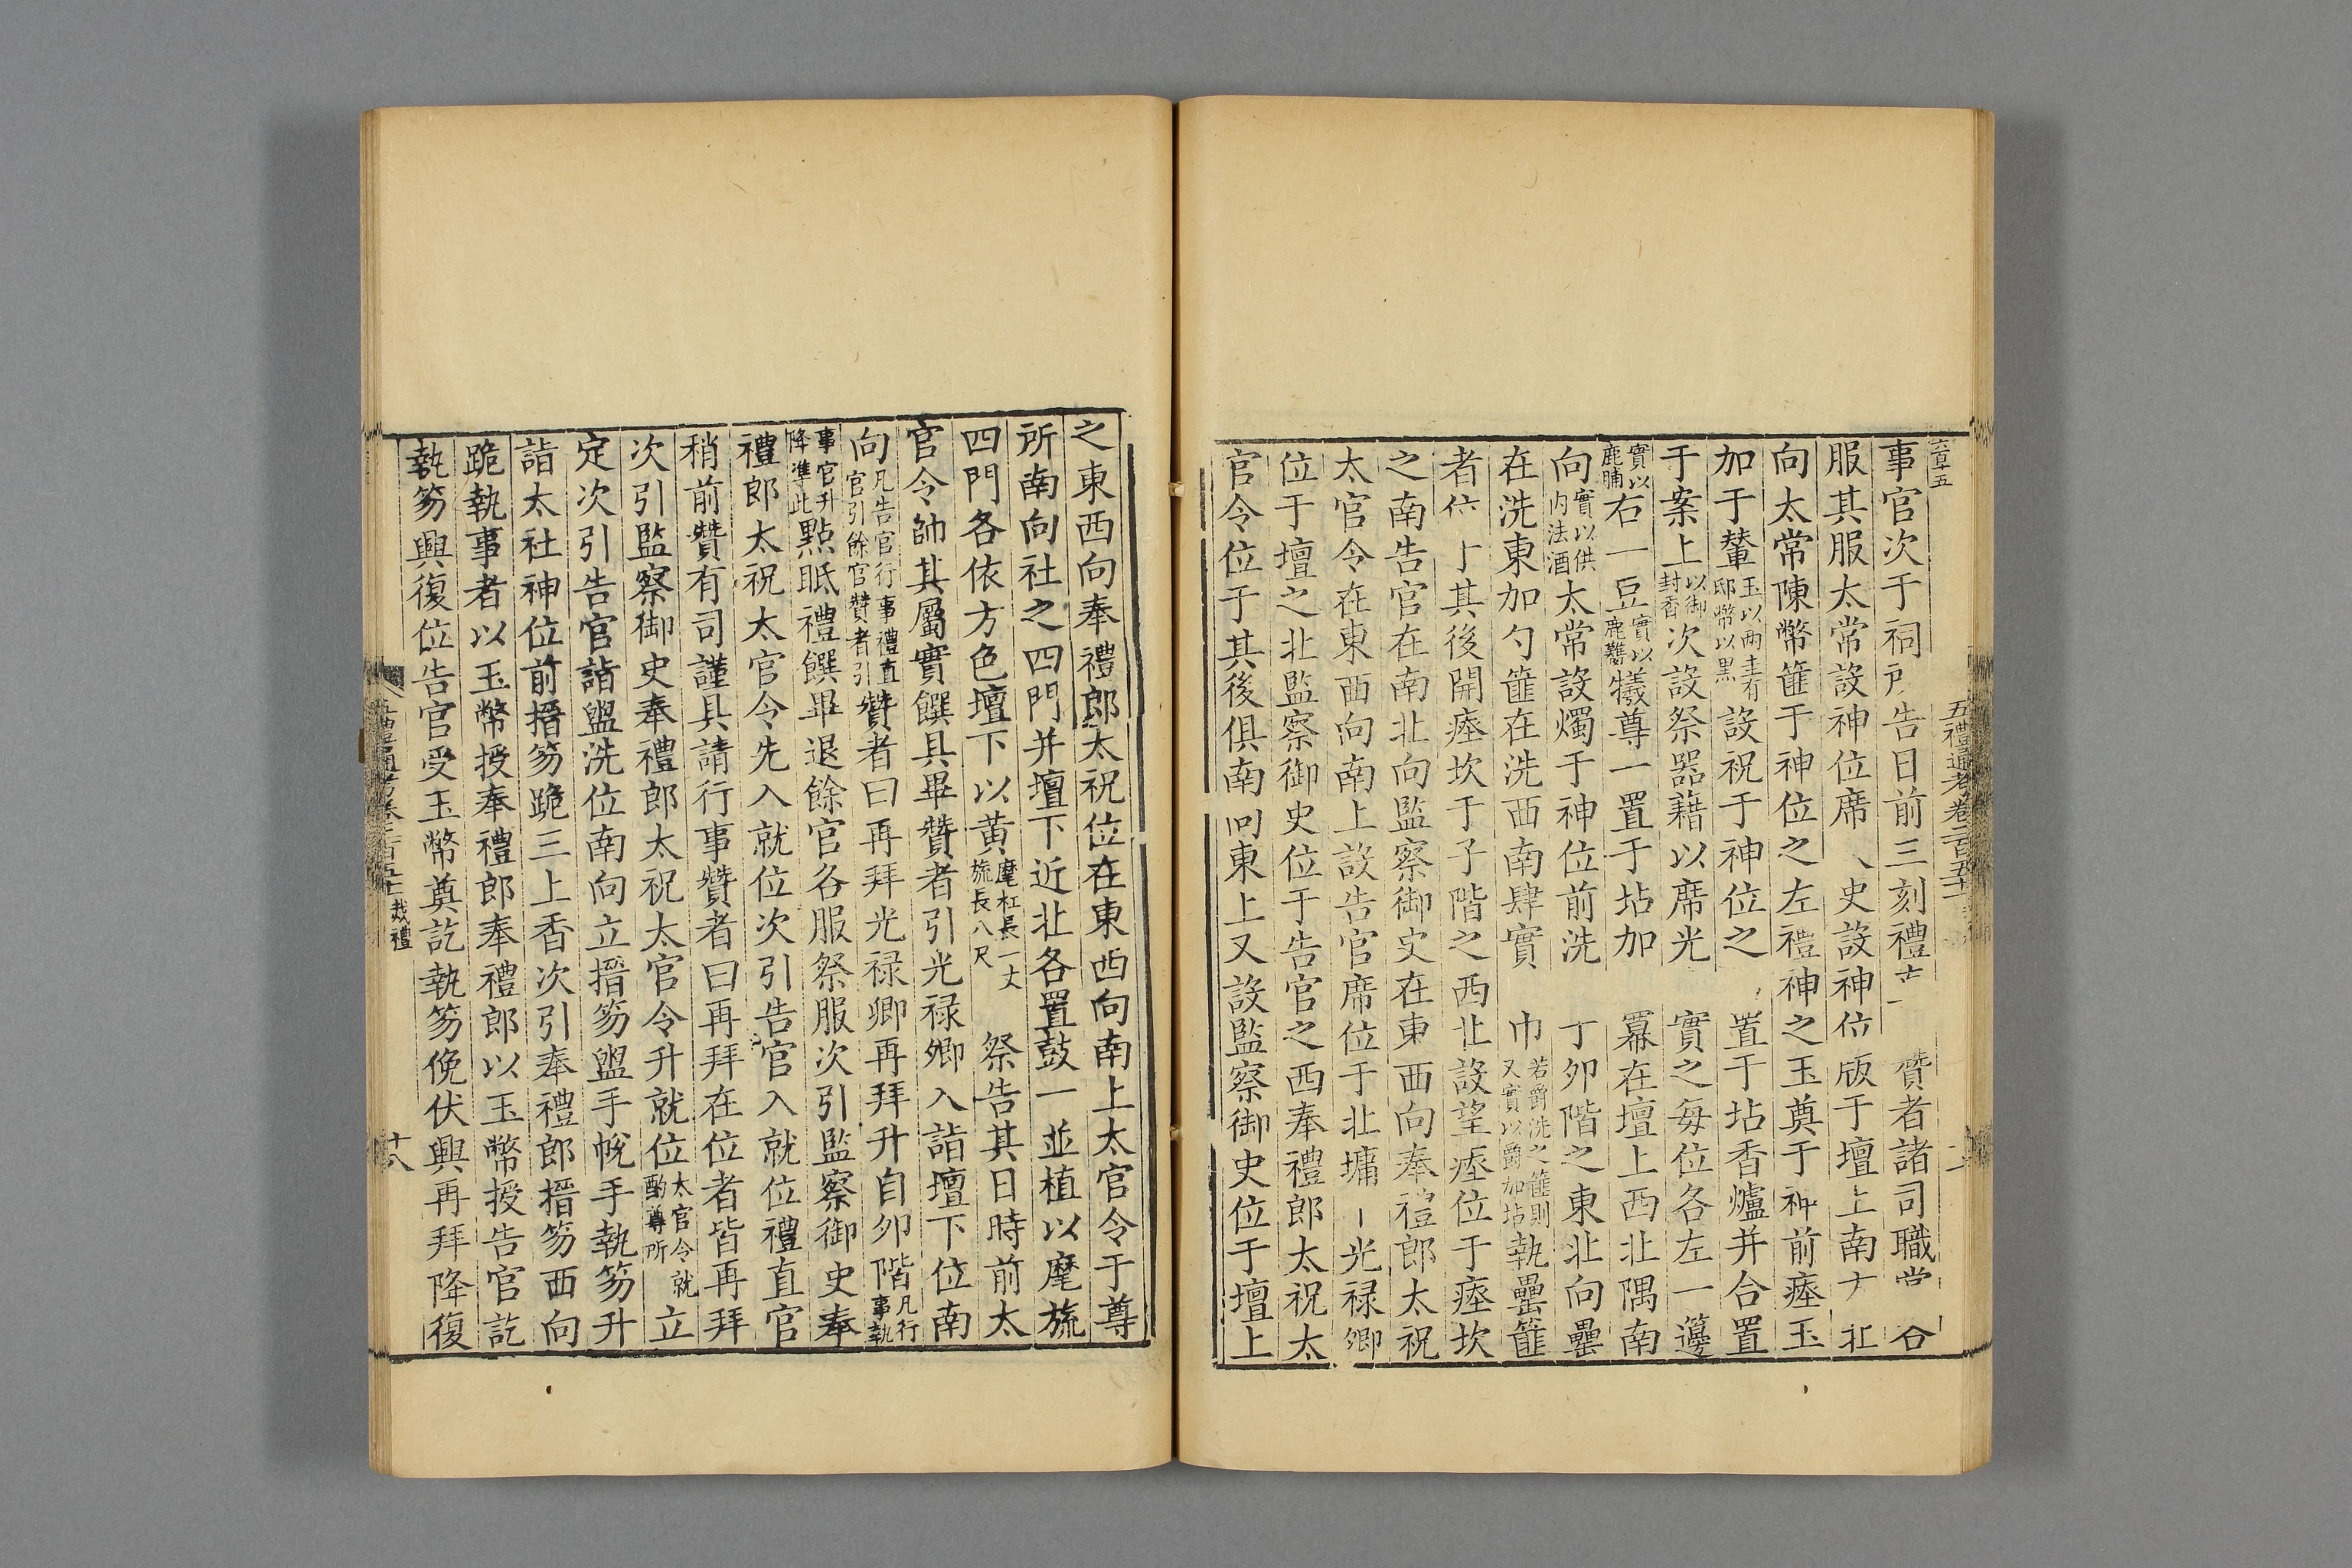 五禮通考卷二百五十
事官次于祠告日前三刻禮贊者諸司職
服其服太常設神位席史設神位版于壇上南北
向太常陳幣篚于神位之左禮神之玉奠于神前瘞玉
加于輦玉以兩圭有邸幣以黑設祝于神位之置于坫香爐并合置
于案上以御封香次設祭器藉以席光實之每位各左一籩
實以鹿脯右一豆實以鹿臡犧尊一置于坫加冪在壇上西北隅南
向實以供内法酒太常設燭于神位前洗于卯階之東北向罍
在洗東加勺篚在洗西南肆實巾若爵洗之篚則又實以爵加坫執罍篚
者位其後開瘞坎于子階之西北設望瘞位于瘞坎
之南告官在南北向監察御史在東西向奉禮郎太祝
太官令在東西向南上設告官席位于北墉光禄卿
位于壇之北監察御史位于告官之西奉禮郎太祝太
官令位于其後俱南向東上又設監察御史位于壇上
之東西向奉禮郎太祝位在東西向南上太官令于尊
所南向社之四門并壇下近北各置鼓一並植以麾旒
四門各依方色壇下以黄麾杠長一丈旒長八尺祭告其日時前太
官令帥其屬實饌具畢贊者引光禄卿入詣壇下位南
向凡告官行事禮直官引餘官贊者引贊者曰再拜光禄卿再拜升自卯階凡行事執
事官升降準此點眡禮饌畢退餘官各服祭服次引監察御史奉
禮郎太祝太官令先入就位次引告官入就位禮直官
稍前贊有司謹具請行事贊者曰再拜在位者皆再拜
次引監察御史奉禮郎太祝太官令升就位太官令就酌尊所立
定次引告官詣盥洗位南向立搢笏盥手帨手執笏升
詣太社神位前搢笏跪三上香次引奉禮郎搢笏西向
跪執事者以玉幣授奉禮郎奉禮郎以玉幣授告官訖
執笏興復位告官受玉幣奠訖執笏俛伏興再拜降復
烖禮
十八